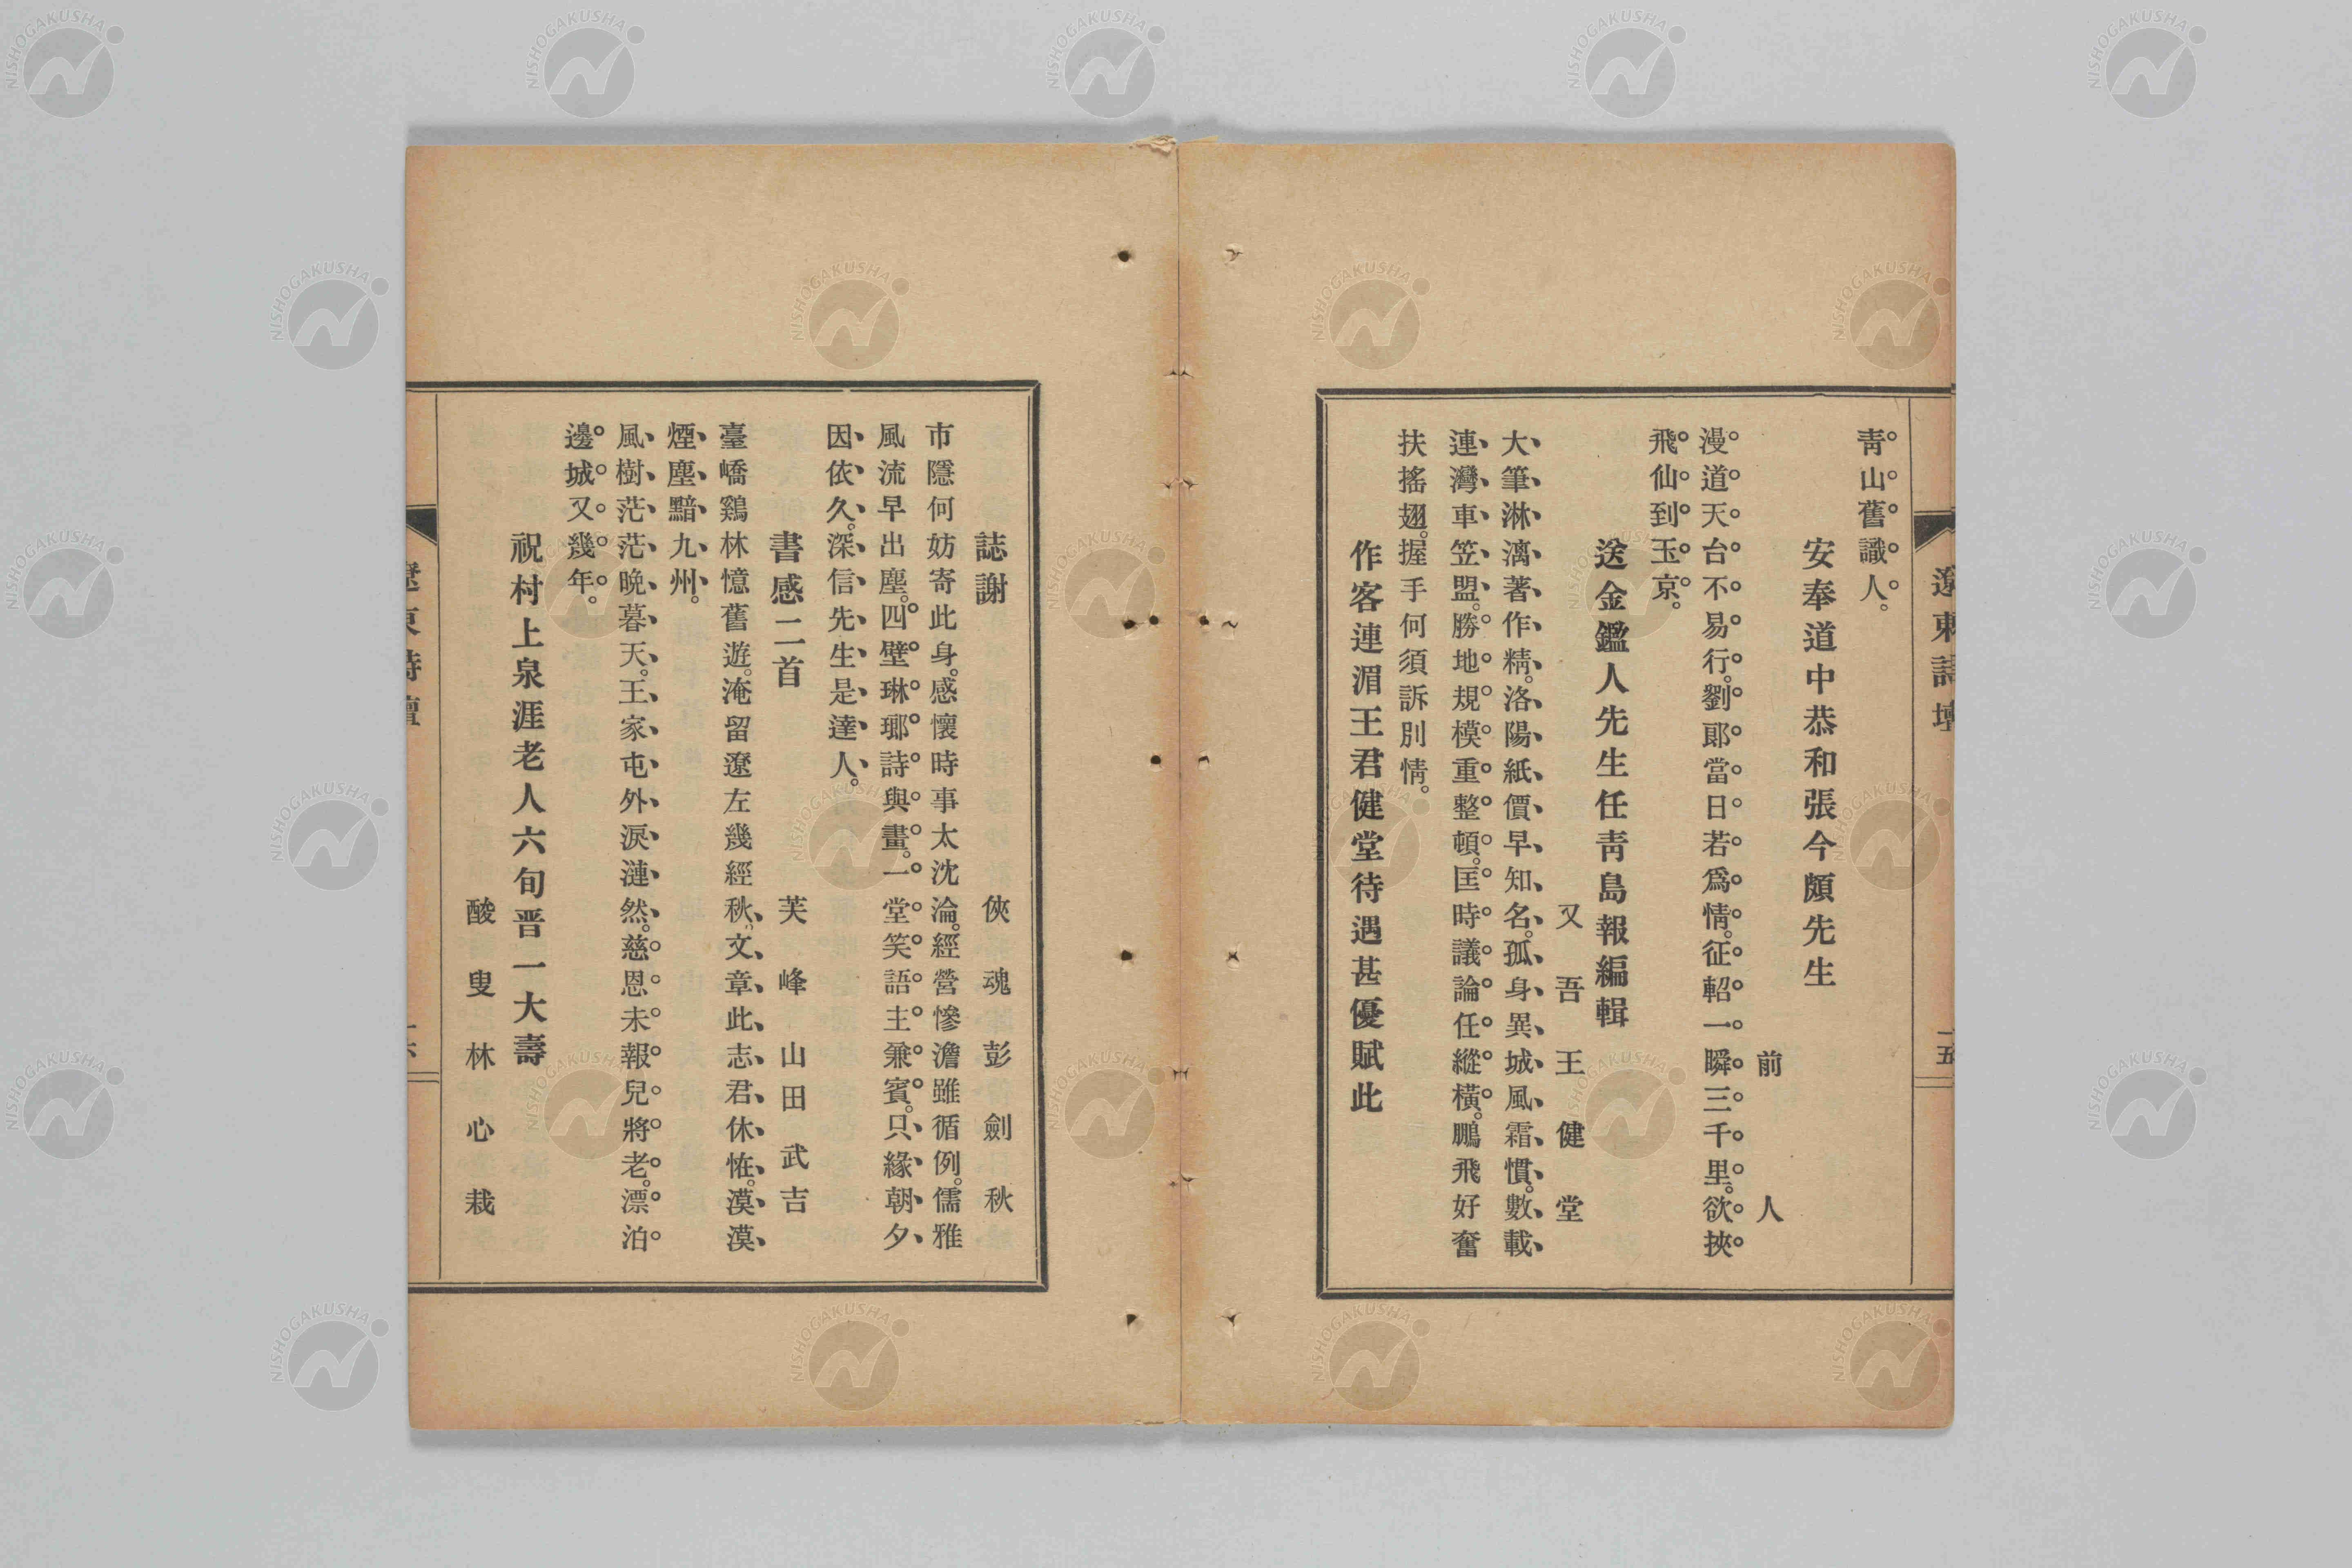 遼東詩壇
一五
靑山舊識人。
安奉道中恭和張今頗先生
前人
漫道天台不易行。劉郎當日若爲情。征軺一瞬三千里。欲挾
飛仙到玉京。
送金鑑人先生任靑島報編輯
又吾王健堂
大筆淋漓著作精。洛陽紙價早知名。孤身異城風霜慣。數載
連灣車笠盟。勝地規模重整頓。匡時議論任縱橫。鵬飛好奮
扶搖翅。握手何須訴別情。
作客連湄王君健堂待遇甚優賦此
誌謝
俠魂彭劍秋
市隱何妨寄此身。感懷時事太沈淪。經營慘澹雖循例。儒雅
風流早出塵。四壁琳瑯詩與畫。一堂笑語主兼賓。只緣朝夕
因依久。深信先生是達人。
書感二首
芙峰山田武吉
臺嶠鷄林憶舊遊。淹留遼左幾經秋。文章此志君休恠。漠漠
煙塵黯九州。
風樹茫茫晩暮天。王家屯外淚漣然。慈恩未報兒將老。漂泊
邊城又幾年。
祝村上泉涯老人六旬晋一大壽
酸叟林心栽
遼東詩壇
NISHOGAKUSHA